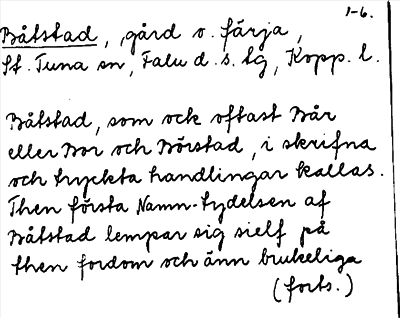 1-6.
Båtstad, gård o. färja,
St. Tuna sn, Falu d. s. tg, Kopp. l.
Båtstad, som ock oftast Bår
eller Bor och Börstad, i skrifna
och tryckta handlingar kallas.
Then första Namn-tydelsen af
Båtstad lempar sig sielf på
then fordom och änn brukeliga
(forts.)